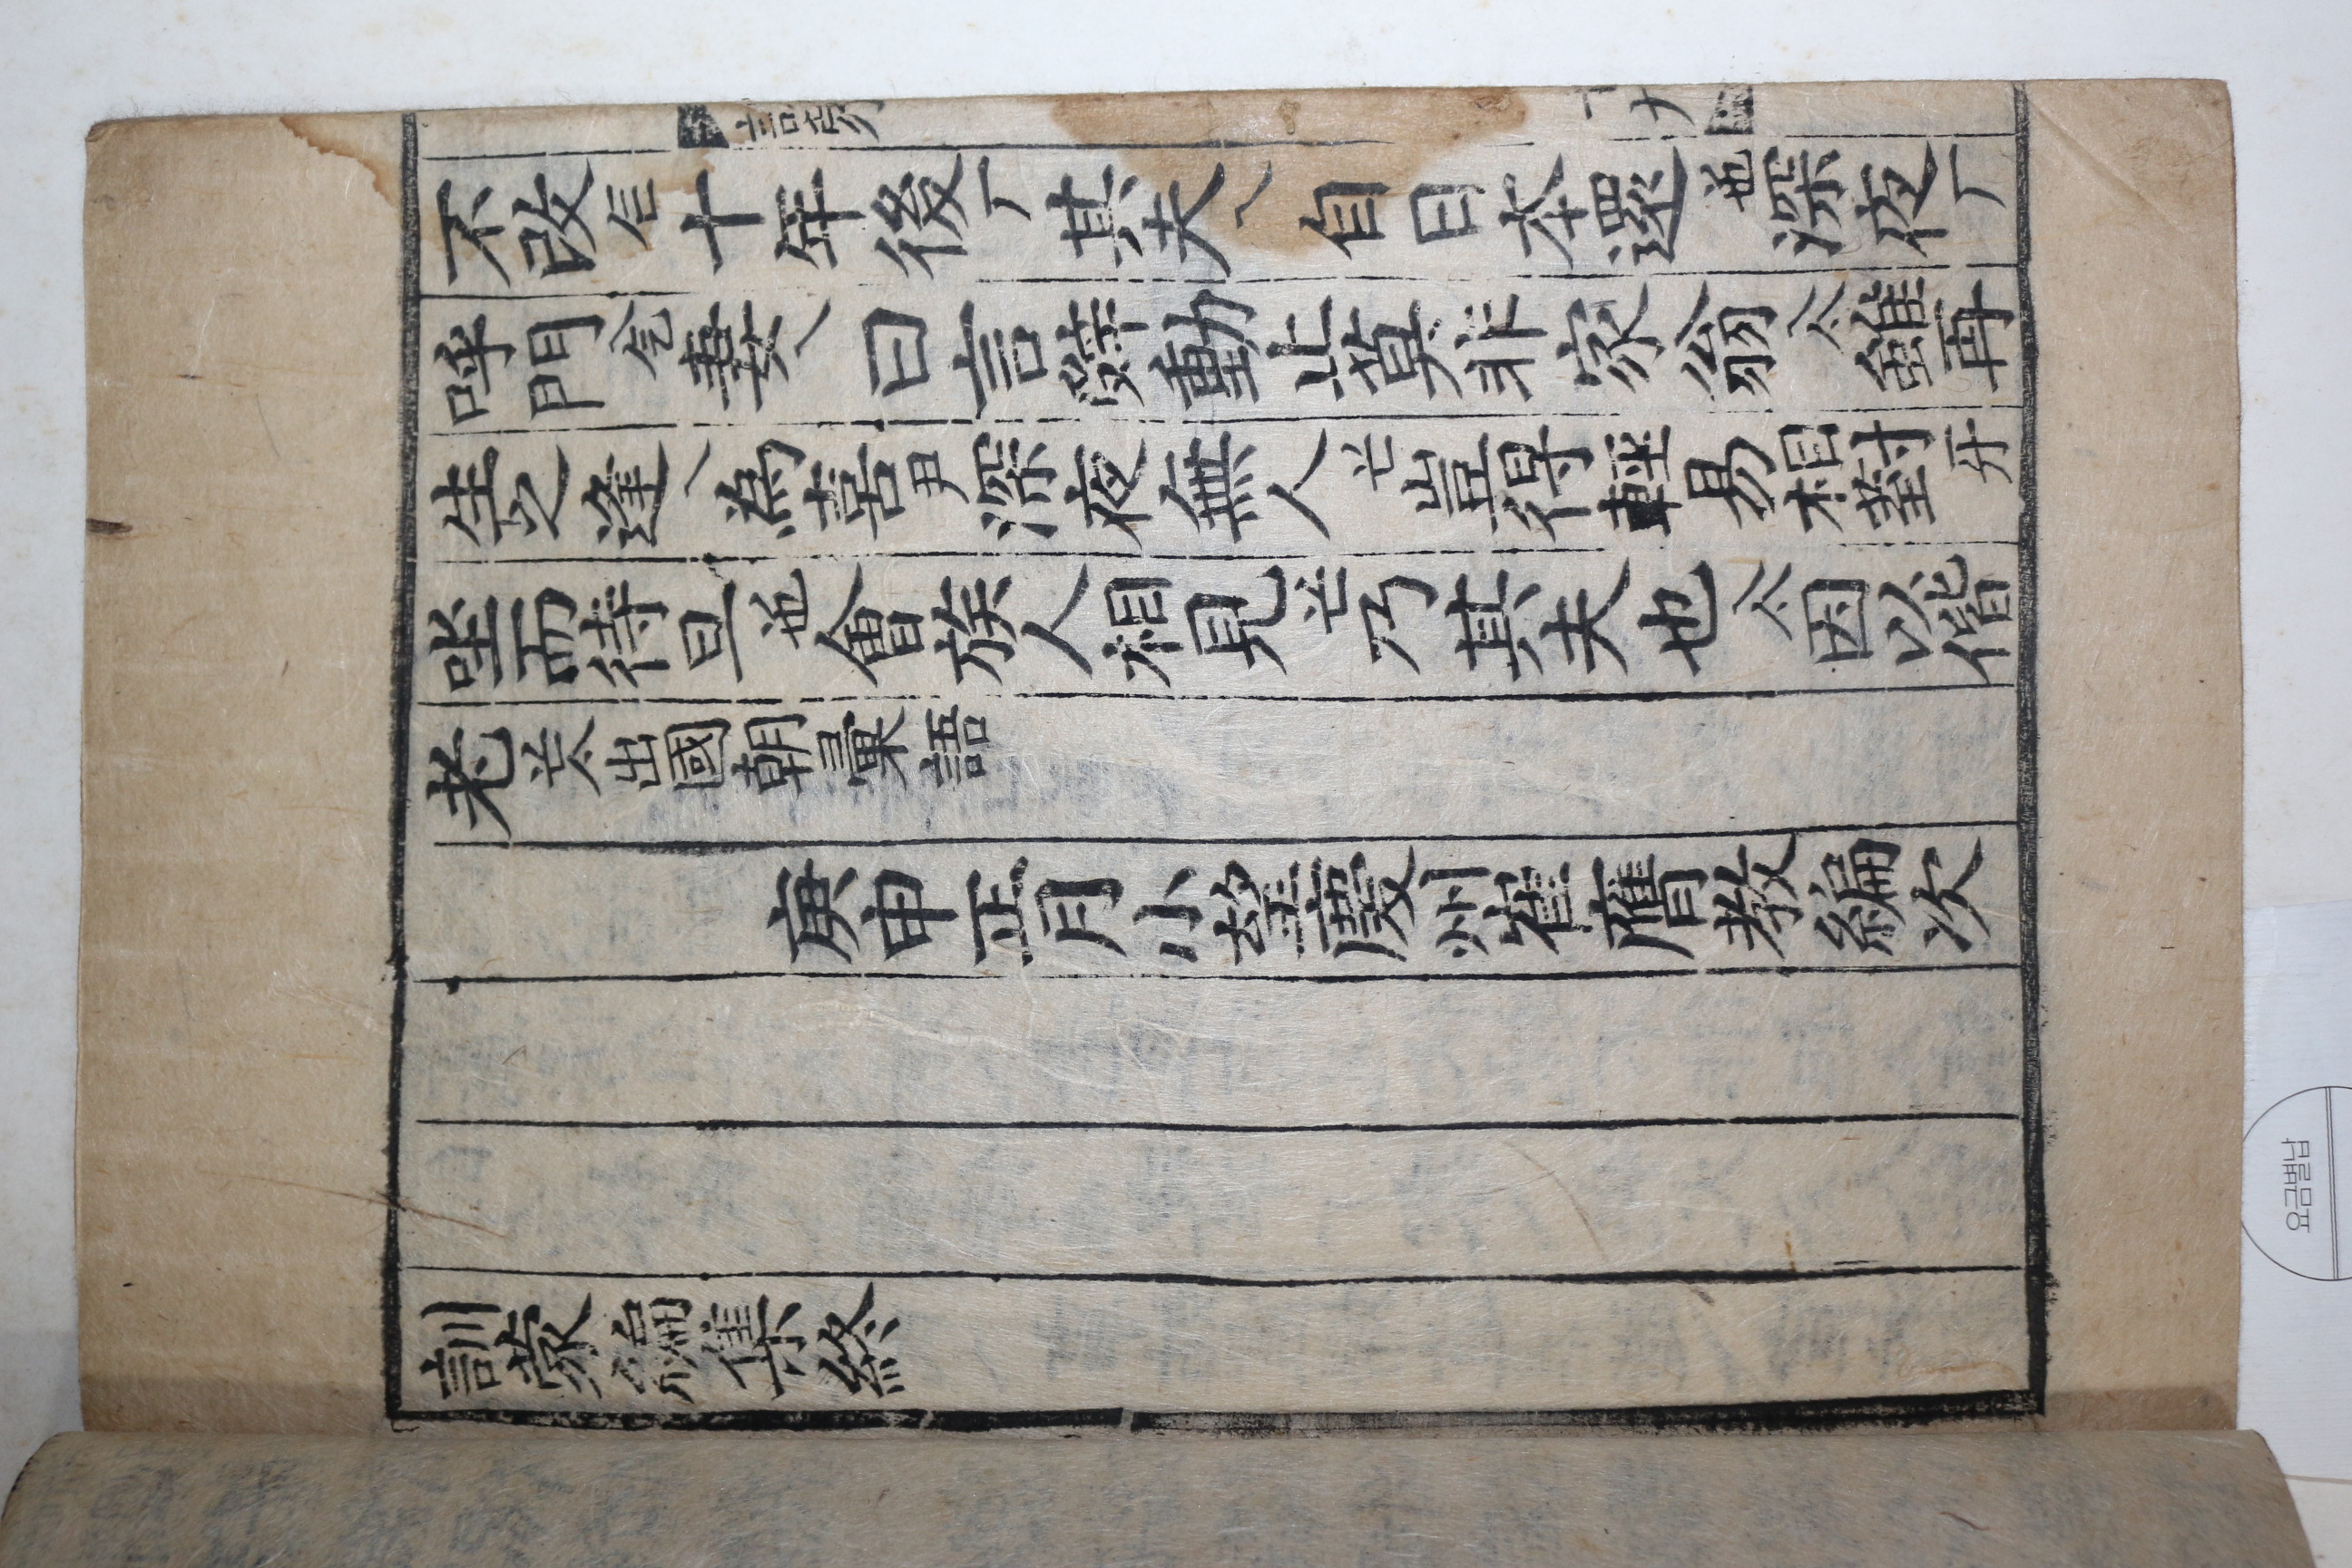 不改𠂉 十年後厂其夫乀自日本還㢱深夜厂
呼門 妻乀曰言辤動止莫非家翁 雖再
生之逢乀為喜尹深夜無人 豈得輕易相對牙
坐而待旦 會族人相見 乃其夫也 因以偕
老 出國朝彙語
庚申正月小望慶州崔膺教編次
訓蒙編集終
訓蒙
요금별납